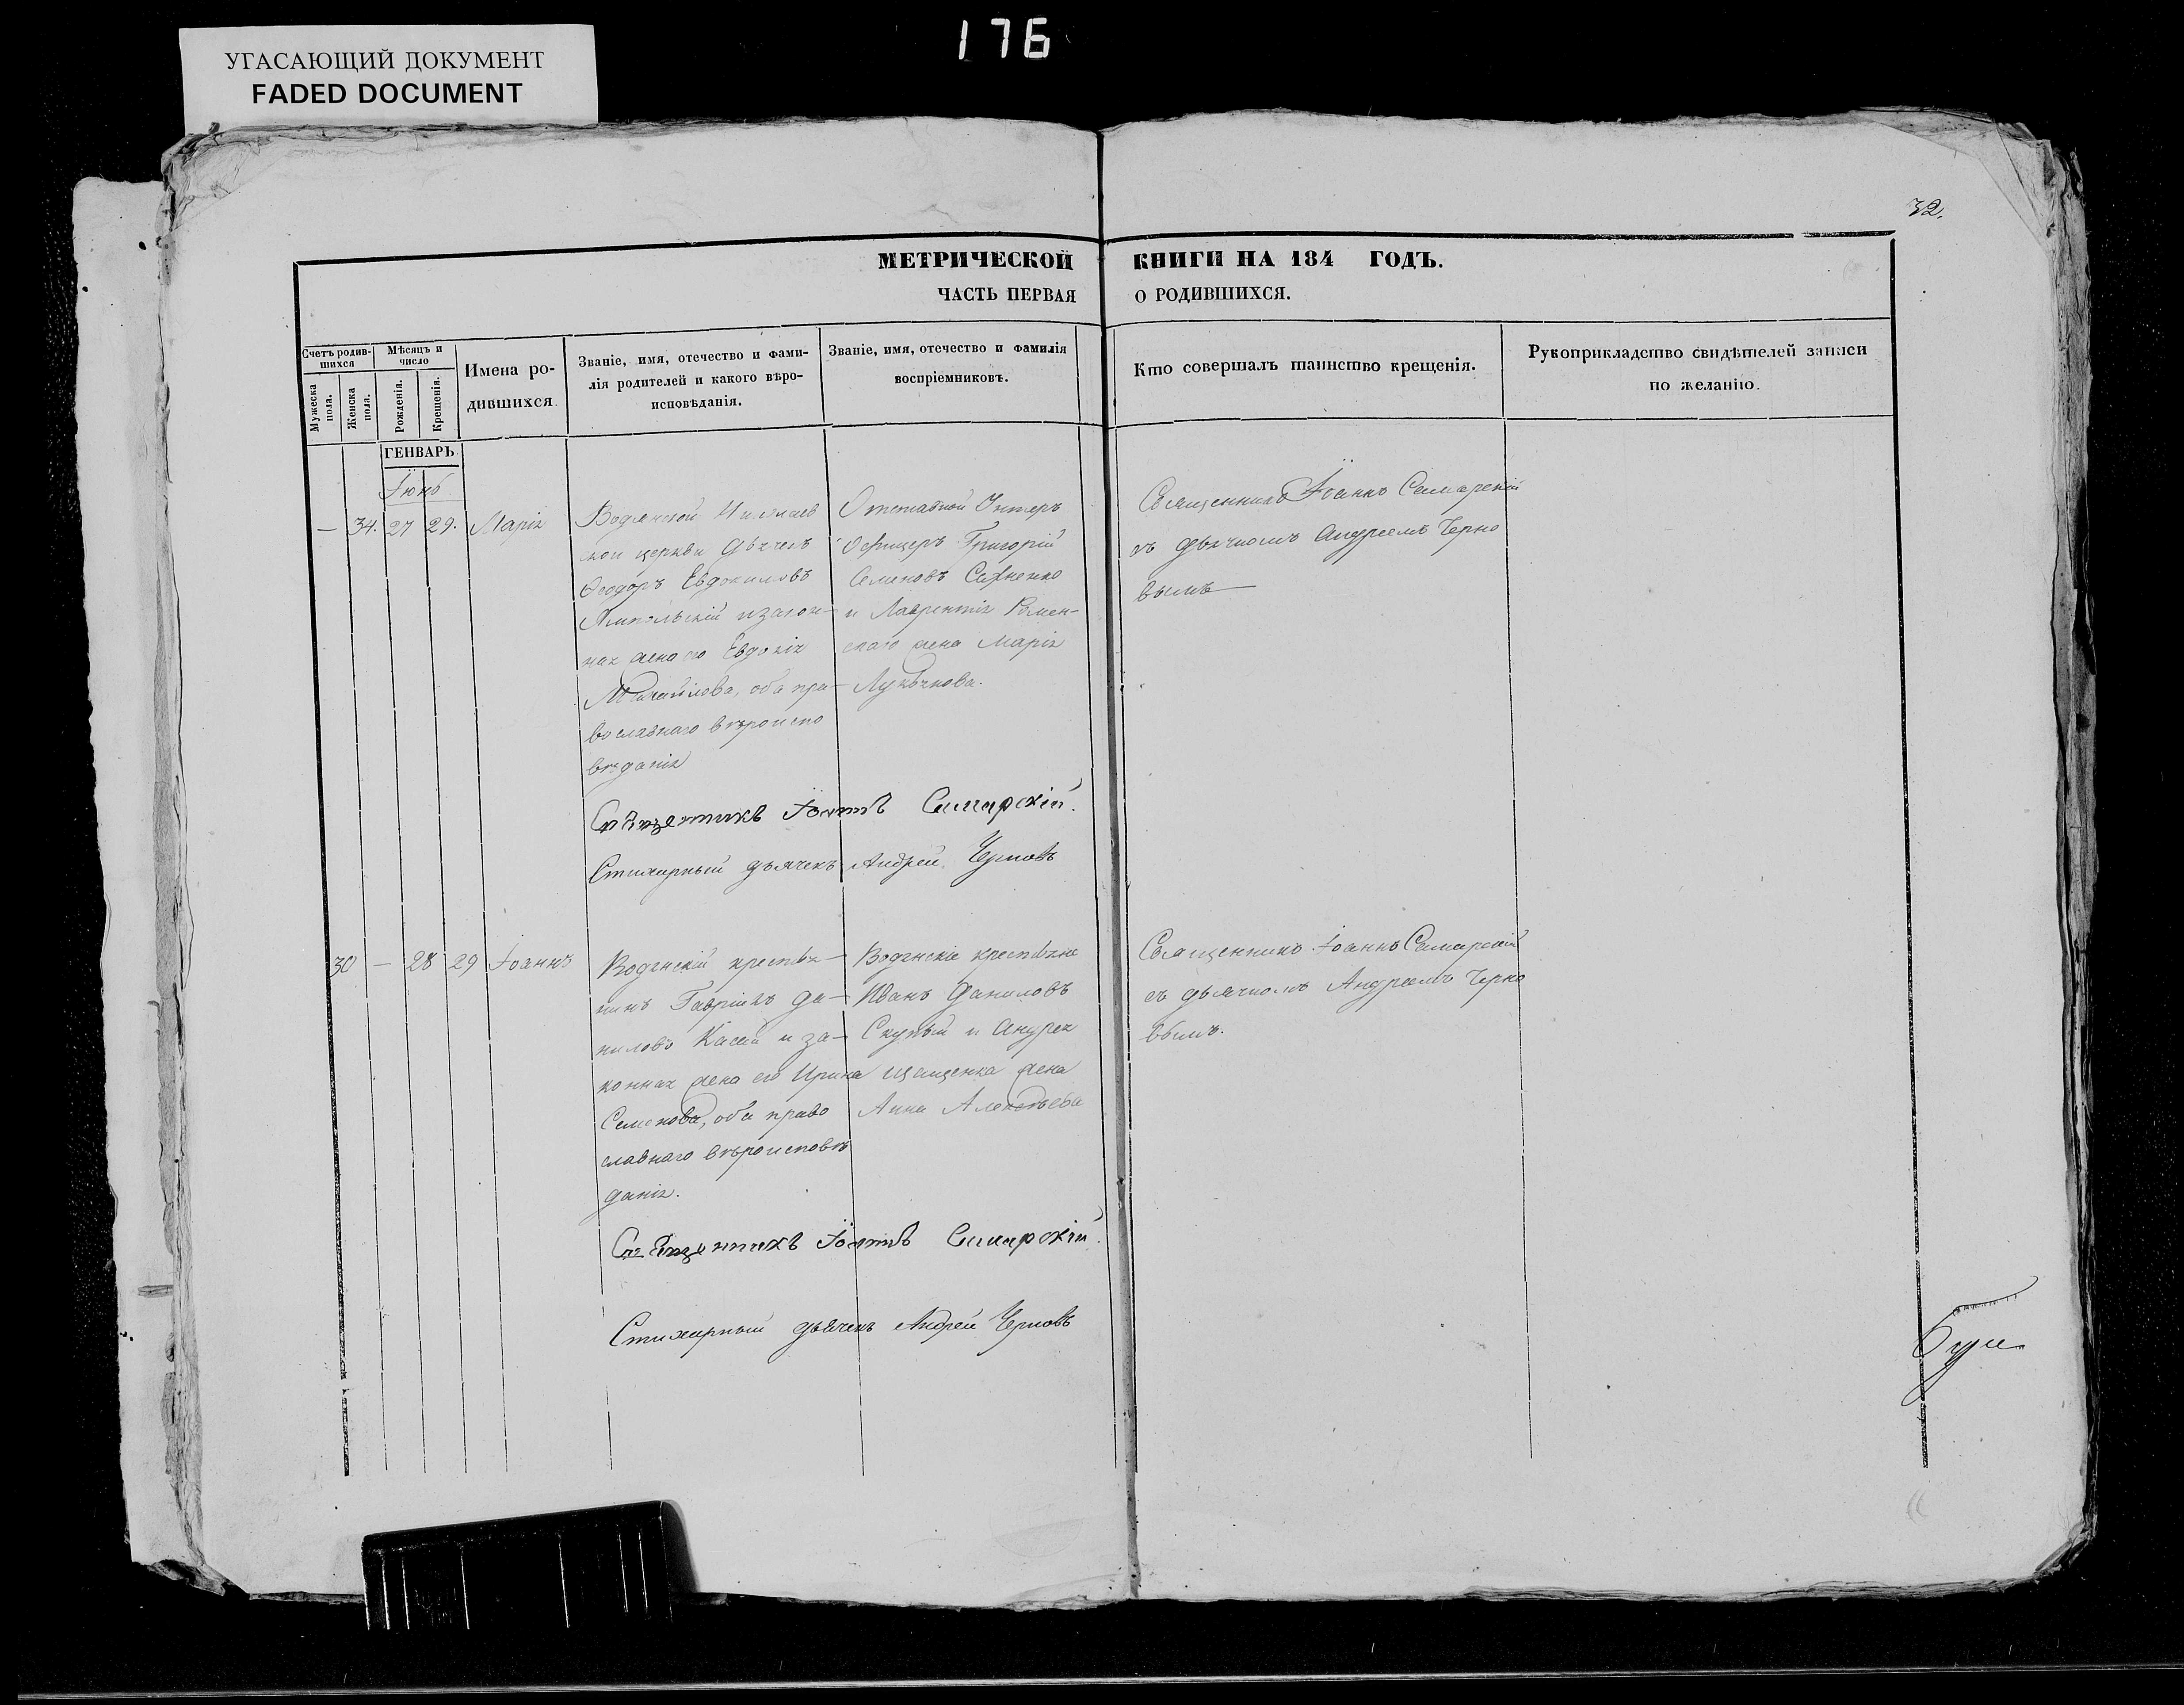 УГАСАЮЩИЙ ДОКУМЕНТ
FADED DOCUMENT
176
32.
МЕТРИЧЕСКОЙ КНИГИ НА 184 ГОДЪ.
ЧАСТЬ ПЕРВАЯ О РОДИВШИХСЯ.
Счетъ родив-
шихся
Мужеска
пола.
Женска
пола.
Мѣсяцъ и
число
Рожденія.
Крещенія.
Имена ро-
дившихся.
Званіе, имя, отечество и фами-
лія родителей и какого вѣро-
исповѣданія.
Званіе, имя, отечество и фамилія
воспріемниковъ.
Кто совершалъ таинство крещенія.
Рукоприкладство свидѣтелей записи
по желанію.
ГЕНВАРЬ
Іюнь
— 34. 27 29. Марія
Водянской
ской церкви Дьячекъ
Ѳеодоръ Евдокимовъ
изакон-
ная жена его Евдокія
Михайлова, оба пра-
вославнаго вѣроиспо
вѣданія
Отставной Унтеръ
Офицеръ Григорій
Семеновъ
и Лаврентія Ромен-
скаго жена Марія
Лукьянова.
Священникъ Іоаннъ Самарскій
съ дьячкомъ Андреемъ Черно
вымъ
Священникъ Іоаннъ Самарскій.
Стихарный дьячекъ Андрей Черновъ
30 — 28 29 Іоаннъ
Водянскій крестья-
нинъ Гавріилъ Да-
ниловъ и за-
конная жена его Ирина
Семенова, оба право
славнаго вѣроисповѣ
данія.
Водянскіе крестьяне
Иванъ Даниловъ
Скупый и Андрея
Ищенка жена
Анна Алексѣева
Священникъ Іоаннъ Самарскій
съ дьячкомъ Андреемъ Черно
вымъ.
Священникъ Іоаннъ Самарскій.
Стихарный дьячекъ Андрей Черновъ